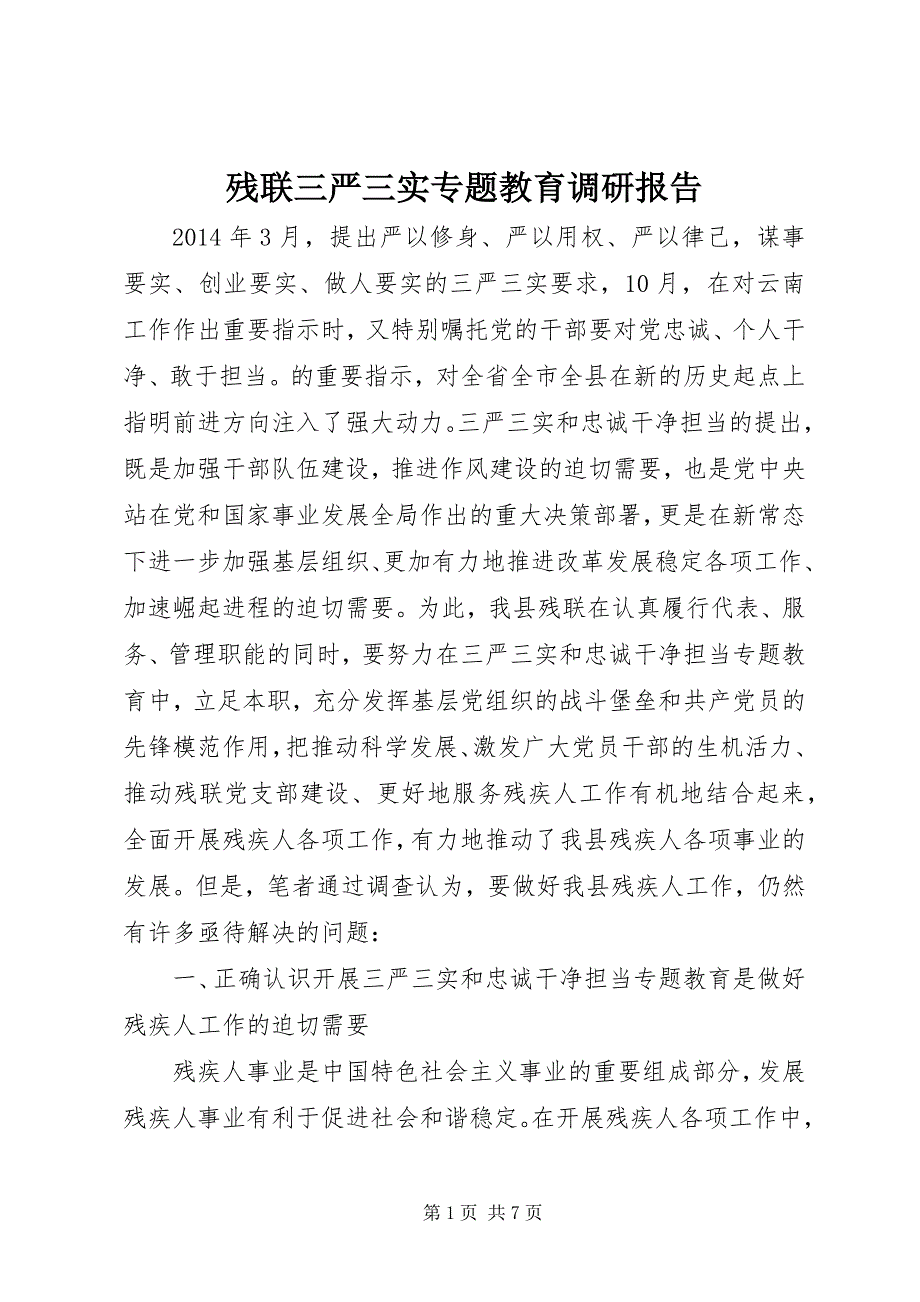 残联三严三实专题教育调研报告
2014 年 3 月，提出严以修身、严以用权、严以律己，谋事
要实、创业要实、做人要实的三严三实要求，10 月，在对云南
工作作出重要指示时，又特别嘱托党的干部要对党忠诚、个人干
净、敢于担当。的重要指示，对全省全市全县在新的历史起点上
指明前进方向注入了强大动力。三严三实和忠诚干净担当的提出，
既是加强干部队伍建设，推进作风建设的迫切需要，也是党中央
站在党和国家事业发展全局作出的重大决策部署，更是在新常态
下进一步加强基层组织、更加有力地推进改革发展稳定各项工作、
加速崛起进程的迫切需要。为此，我县残联在认真履行代表、服
务、管理职能的同时，要努力在三严三实和忠诚干净担当专题教
育中，立足本职，充分发挥基层党组织的战斗堡垒和共产党员的
先锋模范作用，把推动科学发展、激发广大党员干部的生机活力、
推动残联党支部建设、更好地服务残疾人工作有机地结合起来，
全面开展残疾人各项工作，有力地推动了我县残疾人各项事业的
发展。但是，笔者通过调查认为，要做好我县残疾人工作，仍然
有许多亟待解决的问题：
一、正确认识开展三严三实和忠诚干净担当专题教育是做好
残疾人工作的迫切需要
残疾人事业是中国特色社会主义事业的重要组成部分，发展
残疾人事业有利于促进社会和谐稳定。在开展残疾人各项工作中，
第 1 页 共 7 页